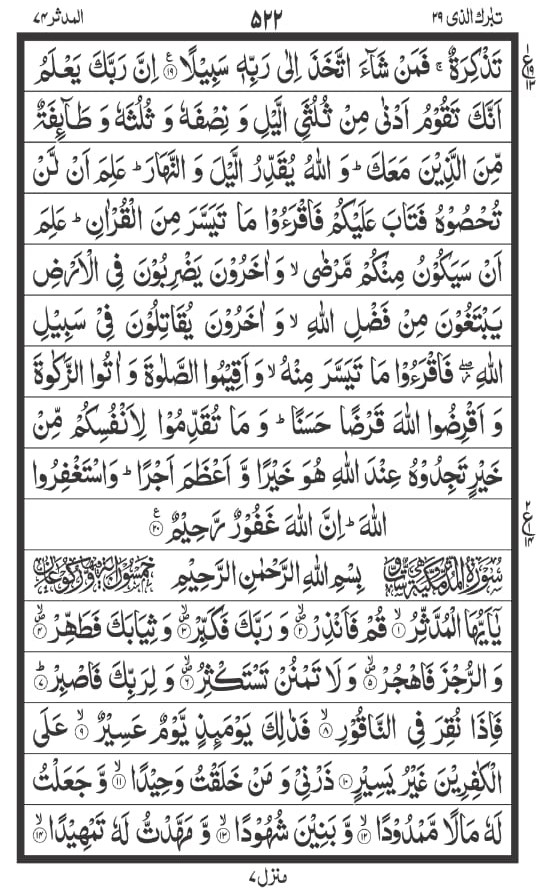 تبارك الذى ٢٩ ٥٢٢ المدثر ٧٤
تَذْكِرَةٌ ۚ فَمَنْ شَآءَ اتَّخَذَ اِلٰى رَبِّهٖ سَبِيْلًا ﴿۱۹﴾ اِنَّ رَبَّكَ يَعْلَمُ
اَنَّكَ تَقُوْمُ اَدْنٰى مِنْ ثُلُثَىِ الَّيْلِ وَ نِصْفَهٗ وَ ثُلُثَهٗ وَ طَآئِفَةٌ
مِّنَ الَّذِيْنَ مَعَكَ ؕ وَ اللّٰهُ يُقَدِّرُ الَّيْلَ وَ النَّهَارَ ؕ عَلِمَ اَنْ لَّنْ
تُحْصُوْهُ فَتَابَ عَلَيْكُمْ فَاقْرَءُوْا مَا تَيَسَّرَ مِنَ الْقُرْاٰنِ ؕ عَلِمَ
اَنْ سَيَكُوْنُ مِنْكُمْ مَّرْضٰى ۙ وَ اٰخَرُوْنَ يَضْرِبُوْنَ فِى الْاَرْضِ
يَبْتَغُوْنَ مِنْ فَضْلِ اللّٰهِ ۙ وَ اٰخَرُوْنَ يُقَاتِلُوْنَ فِىْ سَبِيْلِ
اللّٰهِ ۖ فَاقْرَءُوْا مَا تَيَسَّرَ مِنْهُ ۙ وَ اَقِيْمُوا الصَّلٰوةَ وَ اٰتُوا الزَّكٰوةَ
وَ اَقْرِضُوا اللّٰهَ قَرْضًا حَسَنًا ؕ وَ مَا تُقَدِّمُوْا لِاَنْفُسِكُمْ مِّنْ
خَيْرٍ تَجِدُوْهُ عِنْدَ اللّٰهِ هُوَ خَيْرًا وَّ اَعْظَمَ اَجْرًا ؕ وَاسْتَغْفِرُوا
اللّٰهَ ؕ اِنَّ اللّٰهَ غَفُوْرٌ رَّحِيْمٌ ﴿۲۰﴾
بِسْمِ اللّٰهِ الرَّحْمٰنِ الرَّحِيْمِ
يٰۤاَيُّهَا الْمُدَّثِّرُ ۙ﴿۱﴾ قُمْ فَاَنْذِرْ ۪ۙ﴿۲﴾ وَ رَبَّكَ فَكَبِّرْ ۪ۙ﴿۳﴾ وَ ثِيَابَكَ فَطَهِّرْ ۪ۙ﴿۴﴾
وَ الرُّجْزَ فَاهْجُرْ ۪ۙ﴿۵﴾ وَ لَا تَمْنُنْ تَسْتَكْثِرُ ۪ۙ﴿۶﴾ وَ لِرَبِّكَ فَاصْبِرْ ؕ﴿۷﴾
فَاِذَا نُقِرَ فِى النَّاقُوْرِ ۙ﴿۸﴾ فَذٰلِكَ يَوْمَئِذٍ يَّوْمٌ عَسِيْرٌ ۙ﴿۹﴾ عَلَى
الْكٰفِرِيْنَ غَيْرُ يَسِيْرٍ ﴿۱۰﴾ ذَرْنِىْ وَ مَنْ خَلَقْتُ وَحِيْدًا ۙ﴿۱۱﴾ وَّ جَعَلْتُ
لَهٗ مَالًا مَّمْدُوْدًا ۙ﴿۱۲﴾ وَّ بَنِيْنَ شُهُوْدًا ۙ﴿۱۳﴾ وَّ مَهَّدْتُّ لَهٗ تَمْهِيْدًا ۙ﴿۱۴﴾
منزل ۷